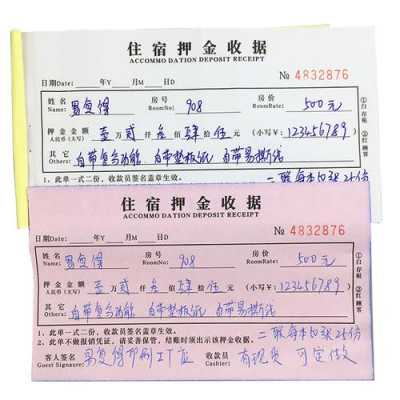 住宿押金收据
ACCOMMO DATION DEPOSIT RECEIPT
№ 4832876
日期Date: 年Y 月M 日D
姓名 Name: 易复得 房号 RoomNo: 908 房价 RoomRate: 500元
押金金额 人民币(大写) 壹万贰仟叁佰肆拾伍元 (小写¥): 123456789
其它 Others: 自带复写功能 自带垫板纸 自带易撕线
1、此单一式二份,收款员签名盖章生效。 二联每本50张25份
①白存根 ②红顾客
住宿押金收据
ACCOMMO DATION DEPOSIT RECEIPT
№ 4832876
日期Date: 年Y 月M 日D
姓名 Name: 易复得 房号 RoomNo: 908 房价 RoomRate: 500元
押金金额 人民币(大写) 壹万贰仟叁佰肆拾伍元 (小写¥): 123456789
其它 Others: 自带复写功能 自带垫板纸 自带易撕线
1、此单一式二份,收款员签名盖章生效。 二联每本50张25份
2、此单不做报销凭证,请妥善保管,结账时须出示该押金收据。
客人签名 Guest Signature: 易复得印刷工厂店 收款员 Cashier: 有现货 可定做
①白存根 ②红顾客